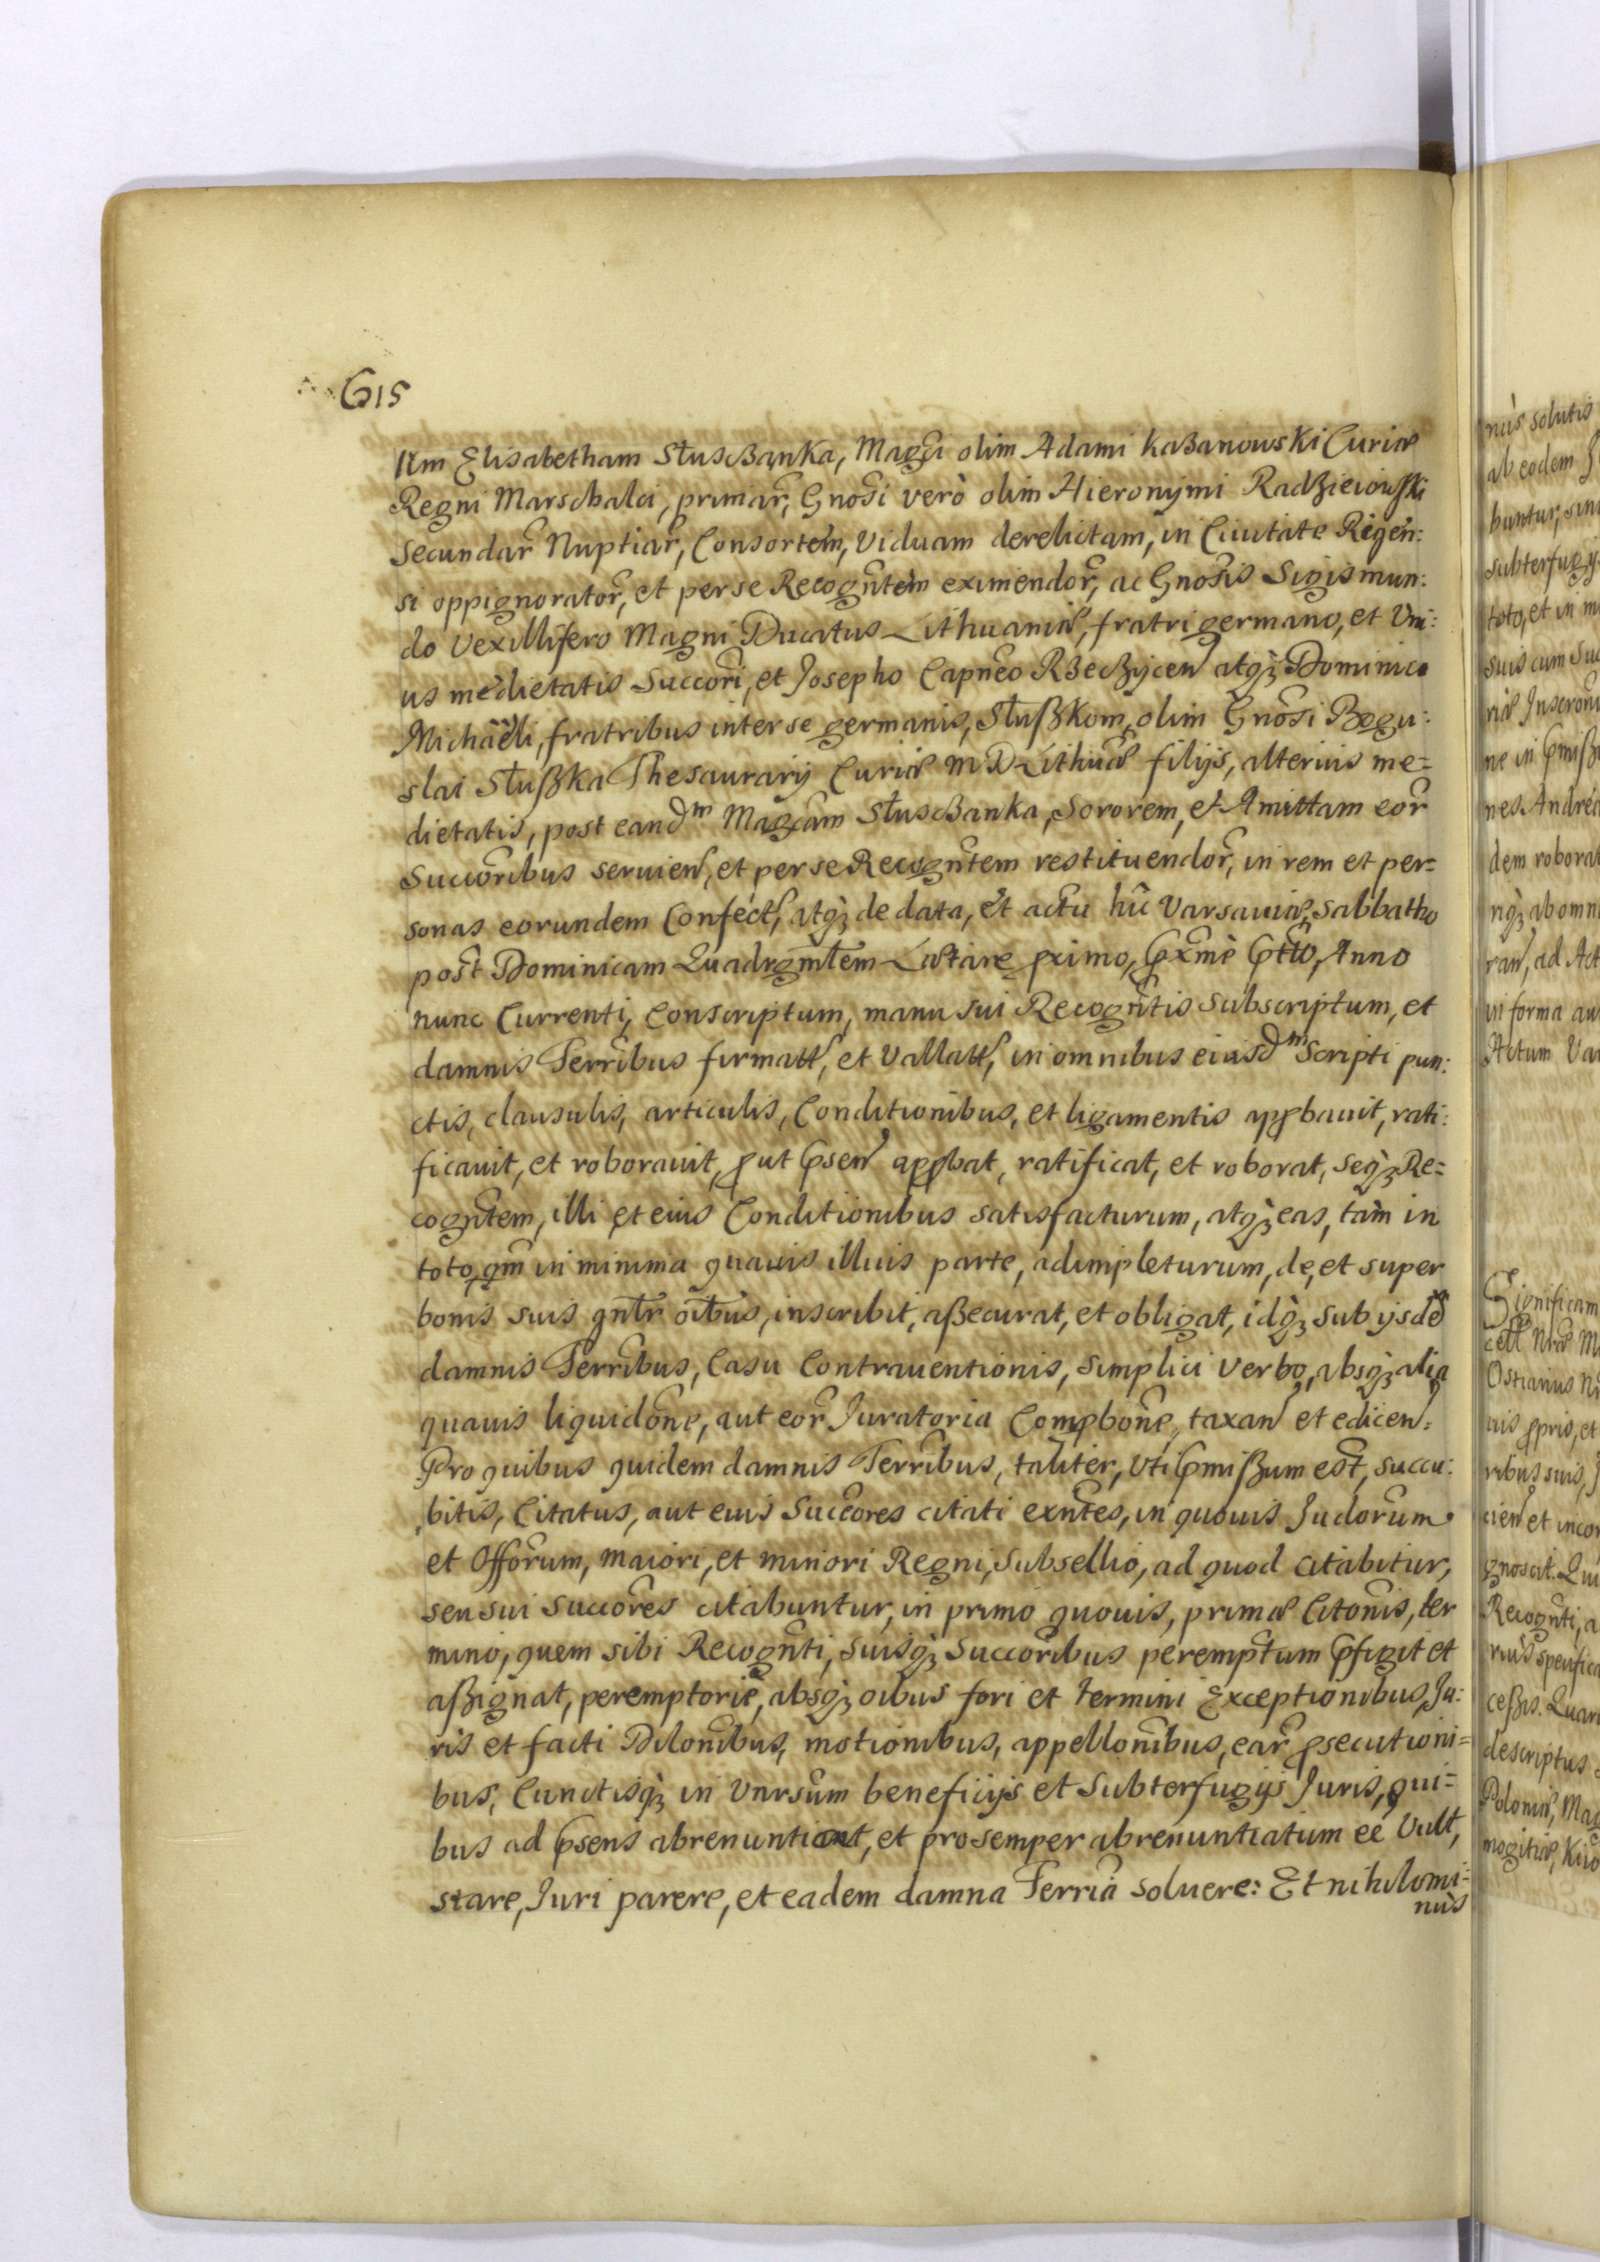 615
llm Elisabetham Słuschanka, Magci olim Adami Kaßanowski Curiæ
Regni Marschalci, primar, Gnosi verò olim Hieronymi Radzieiowski
Secundar Nuptiar, Consortem, Viduam derelictam, in Ciuitate Regen:
si oppignorator, et per se Recogntem eximendor, ac Gnosis Sigismun:
do Vexillifero Magni Ducatus Lithuaniæ, fratri germano, et Vni:
us medietatis Succori, et Josepho Capneo Rzeczycen atq3 Dominico
Michaëli, fratribus inter se germanis, Słußkom, olim Gnosi Bogu:
slai Słußka Thesaurarij Curiæ M D Lithuæ filijs, alterius me=
dietatis, post eandm Magcam Słuschanka, Sororem, et Amittam eor
Succoribus seruien, et per se Recogntem restituendor, in rem et per=
sonas eorundem Confect, atq3 de data, et actu hic Varsauiæ, Sabbatho
post Dominicam Quadrgmlem Lætare pximo, Pxme Ptto, Anno
nunc Currenti, Conscriptum, manu sui Recogntis subscriptum, et
damnis Terribus firmatt, et Vallatt, in omnibus eiusdm Scripti pun:
ctis, clausulis, articulis, Conditionibus, et ligamentis appbauit, rati:
ficauit, et roborauit, put Psen appbat, ratificat, et roborat, seq3 Re=
cogntem, illi et eius Conditionibus satisfacturum, atq3 eas, tàm in
toto, qm in minima quauis illius parte, adimpleturum, de, et super
bonis suis gntr oibus, inscribit, aßecurat, et obligat, idq3 sub ijsde
damnis Terribus, Casu Contrauentionis, simplici Verbo, absq3 alia
quauis liquidone, aut eor Juratoria Compbone, taxan et edicen.
Pro quibus quidem damnis Terribus, taliter, Vti Pmißum est, succu:
bitis, Citatus, aut eius Succores citati exntes, in quouis Judorum
et Offorum, maiori, et minori Regni, Subsellio, ad quod citabitur,
seu sui Succores citabuntur, in primo quouis, primæ Citonis, ter
mino, quem sibi Recognti, suisq3 Succoribus peremptum Pfigit et
aßignat, peremptoriè, absq3 oibus fori et termini Exceptionibus, Ju:
ris et facti Dilonibus, motionibus, appellonibus, ear psecutioni=
bus, Cunctisq3 in Vnrsum beneficijs et Subterfugijs Juris, qui=
bus ad Psens abrenuntiat, et pro semper abrenuntiatum eê Vult,
stare, Juri parere, et eadem damna Terria soluere: Et nihilomi=
nùs
nùs solutis
ab eodem
buntur, sin
subterfugij
toto, et in m
suis cum Suc
riæ Inscroni
ne in Pmißi
nes Andre
dem roborat
nq3 ab omni
ran, ad Act
in forma au
Actum Var
Significam
cell Nræ M
Ostianus
uis ppris, et
ribus suis,
cien et incor
gnoscit. Qui
Recognti, a
riùs specifica
ceßis. Quar
descriptus
Poloniæ, Mag
mogitiæ, Kiio